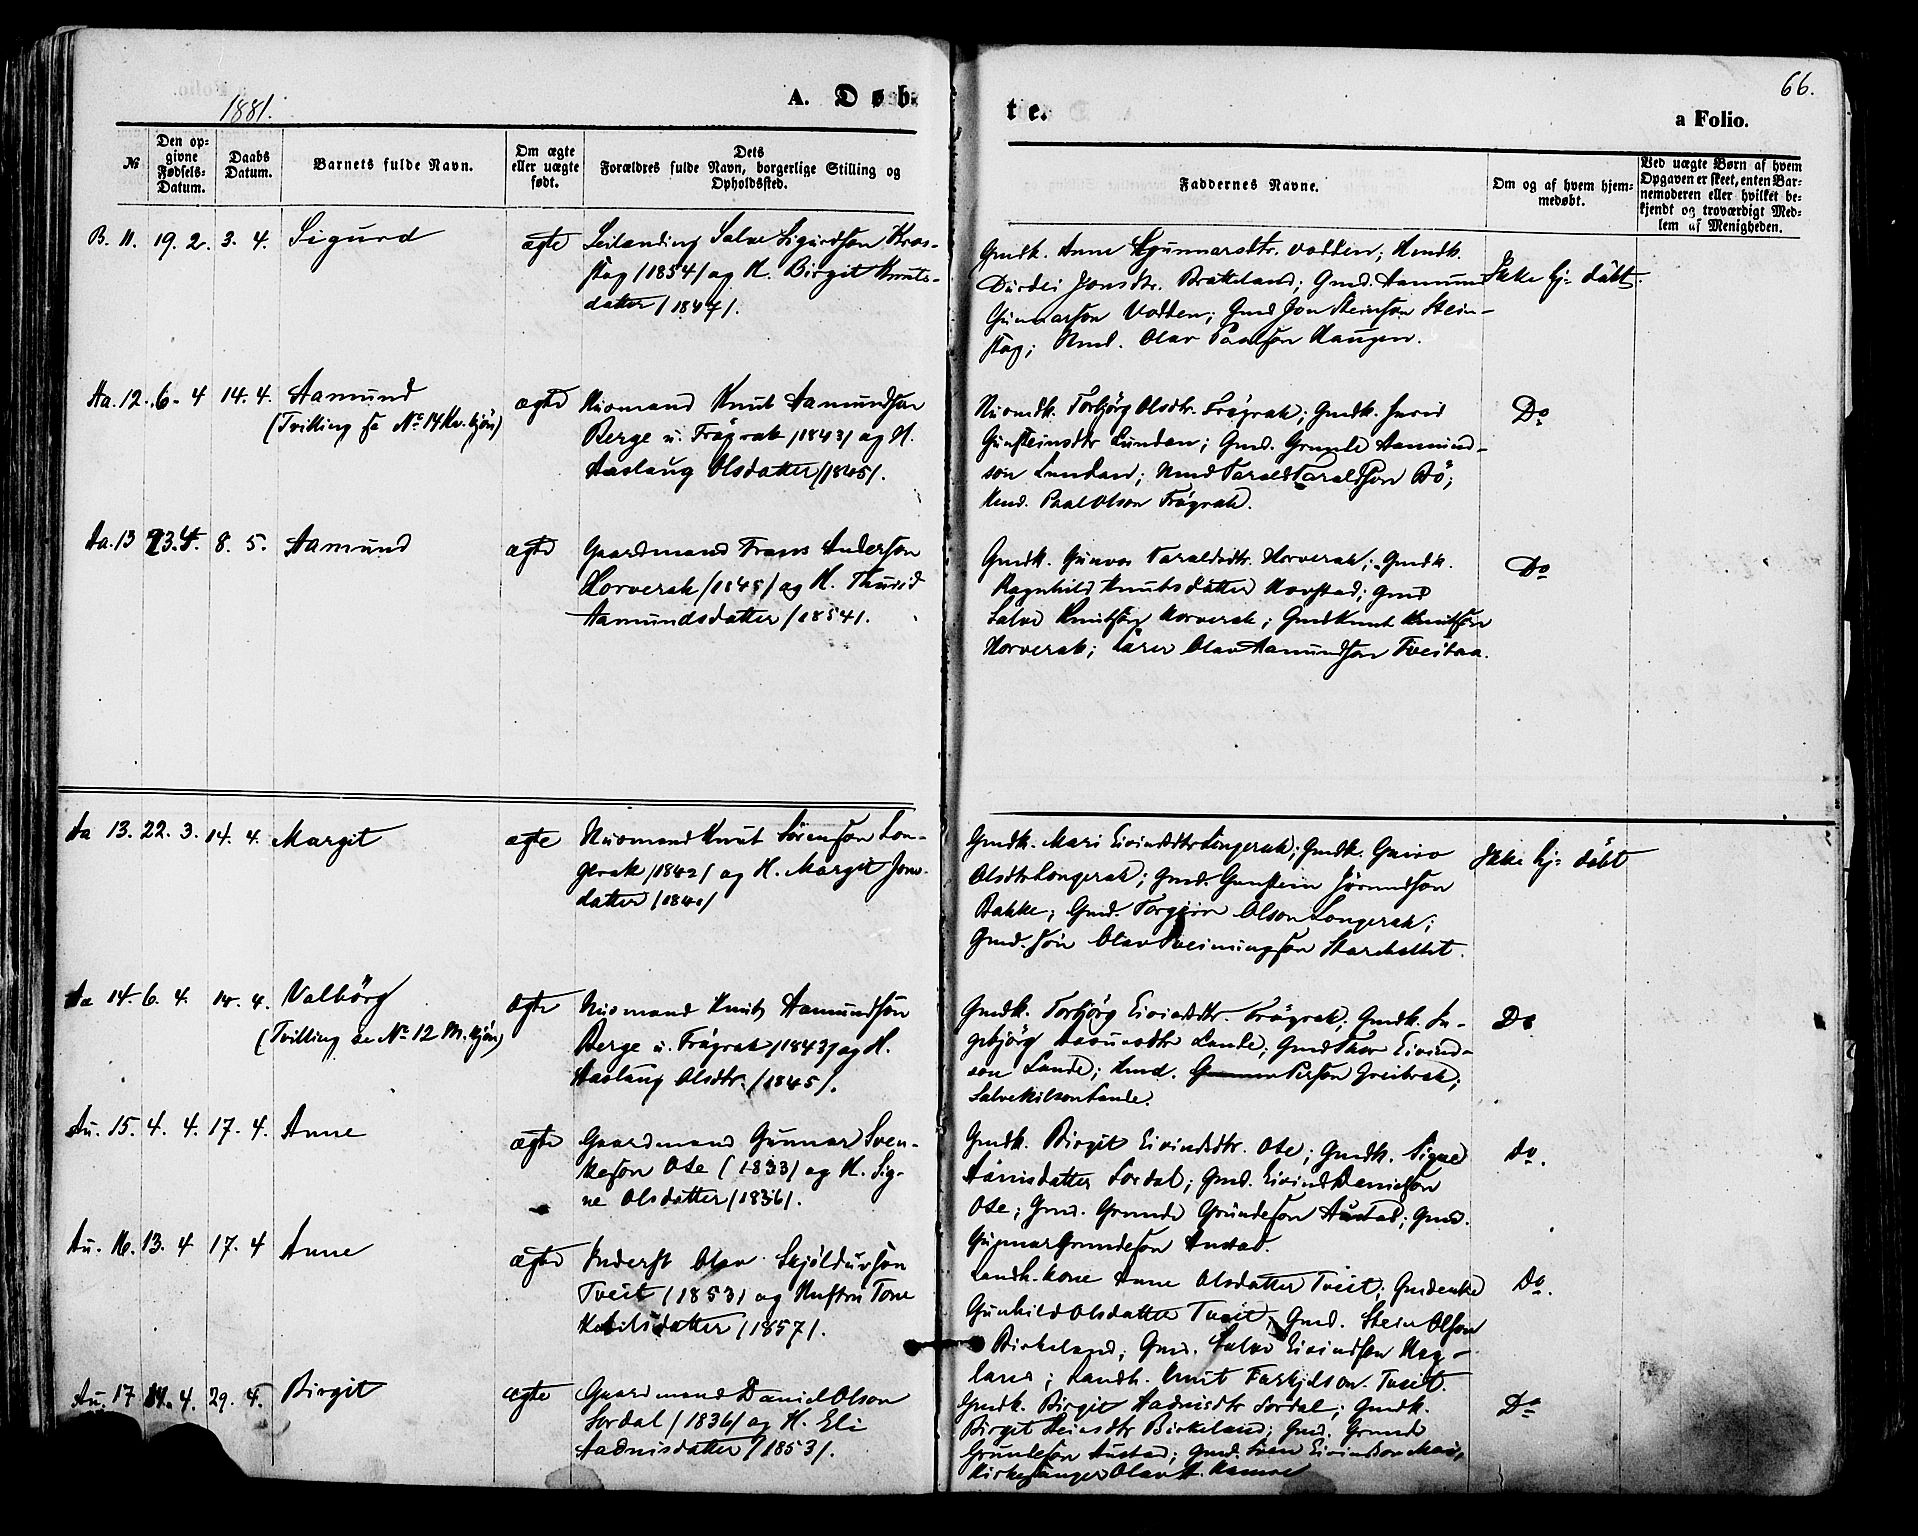 1881.
A. Døb-
te.
66.
a Folio.
№
Den op-
givne
Fødsels-
Datum.
Daabs
Datum.
Barnets fulde Navn.
Om ægte
eller uægte
født.
Dets
Forældres fulde Navn, borgerlige Stilling og
Opholdssted.
Faddernes Navne.
Om og af hvem hjem-
medøbt.
Ved uægte Børn af hvem
Opgaven er skeet, enten Bar-
nemoderen eller hvilket be-
kjendt og troværdigt Med-
lem af Menigheden.
B. 11. 19. 2. 3. 4. Sigurd ægte Leilænding Salve Sigurdson
/1854/ og H. Birgit Knuts-
datter /1847/.
Gmdk. Anne Gunnarsdtr. Vodden; Kmdk.
Durdei Jonsdtr. Bratteland; Gmd. Aamund
Gunnarson Vodden; Gmd Jon Steinson
Olav Paalson Haugen.
Ikke hj: døbt.
Aa. 12. 6. 4 14. 4. Aamund
(Tvilling se No 14 Kv.kjön)
ægte Husmand Knut Aamundson
Berge u. Frøyrak /1843/ og H.
Aaslaug Olsdatter /1845/.
Husmdk. Torbjörg Olsdtr. Frøyrak; Gmdk.
Gunsteinsdtr Lundan; Gmd. Grunde Aamund-
son Lundan; Tarald Taraldson Bö;
Paal Olson Frøyrak.
Do
Aa. 13 23. 4. 8. 5. Aamund ægte Gaardmand Frans Anderson
Horverak /1845/ og H. Thurid
Aamundsdatter /1854/.
Gmdk. Gunvor Taraldsdtr. Horverak; Gmdk.
Ragnhild Knutsdatter Kavstad; Gmd
Salve Knutson Horverak; Gmd Knut Knutson
Horverak; Lærer Olav Aamundson Tveitaa.
Do
Aa 13. 22. 3. 14. 4. Margit ægte Husmand Knut Sörenson Lon-
gerak /1842/ og H. Margit Jons-
datter /1840/
Gmdk. Mari Eivindsdtr Longerak; Gmdk. Guro
Olsdtr Longerak; Gmd. Gunstein
Bakke; Gmd. Torgeir Olson Longerak;
Gmd. sön Olav Sveinungson
Ikke hj: döbt
Aa 14. 6. 4. 14. 4. Valbörg
(Tvilling se No 12 M.kjön)
ægte Husmand Knut Aamundson
Berge u. Frøyrak /1843/ og H.
Aaslaug Olsdtr. /1845/.
Gmdk. Torbjörg Eivindsdtr. Frøyrak; Gmdk. In-
gebjörg Lande; Gmd Thor Eivind-
son Lande; Person
Salve Nilson Lande.
Do
Au. 15. 4. 4. 17. 4. Anne ægte Gaardmand Gunnar Sven-
keson Ose (1833) og H. Sig-
ne Olsdatter /1836/.
Gmdk. Birgit Eivindsdtr. Ose; Gmdk. Signe
Sordal; Gmd. Eivind Danielson
Ose; Gmd. Grunde Grundeson Austad; Gmd.
Gunnar Grundeson Austad.
Do.
Au. 16. 13. 4 17. 4 Anne ægte Inderst Olav Skjölduvson
Tveit (1853) og Hustru Tone
Ketilsdatter /1857/.
Landh. kone Anne Olsdatter Tveit; Gmdenke
Gunhild Olsdatter Tveit; Gmd. Stein Olson
Birkeland; Gmd. Salve Eivindson
Landh. Knut Torkjelson Tveit.
Do.
Au. 17 14. 4. 29. 4. Birgit ægte Gaardmand Daniel Olson
Sordal /1836/ og H. Eli
Aadnisdatter /1853/.
Gmdk. Birgit Aadnisdtr Sordal; Gmdk.
Birgit Steinsdtr Birkeland; Gmd. Grunde
Grundeson Austad; Gmd. Sven Eivindson
Kirkesanger Olav
Do